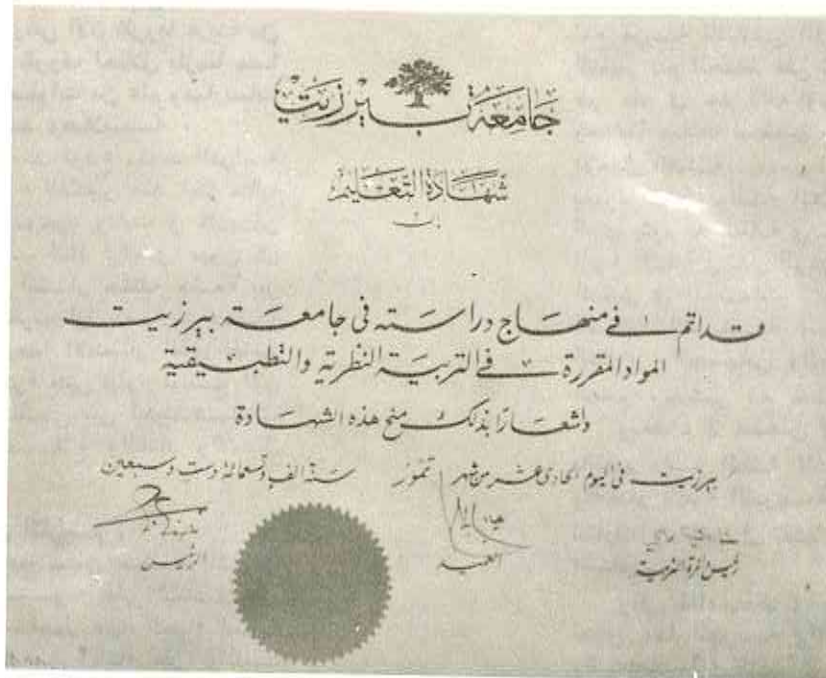 جامعة بيرزيت
شهادة التعليم
بأن
قد اتم في منهاج دراسته في جامعة بيرزيت
المواد المقررة في التربية النظرية والتطبيقية
واشعارًا بذلك منح هذه الشهادة
بيرزيت في اليوم الحادي عشر من شهر تموز سنة الف وتسعمائة وست وسبعين
رئيس دائرة التربية العميد الرئيس